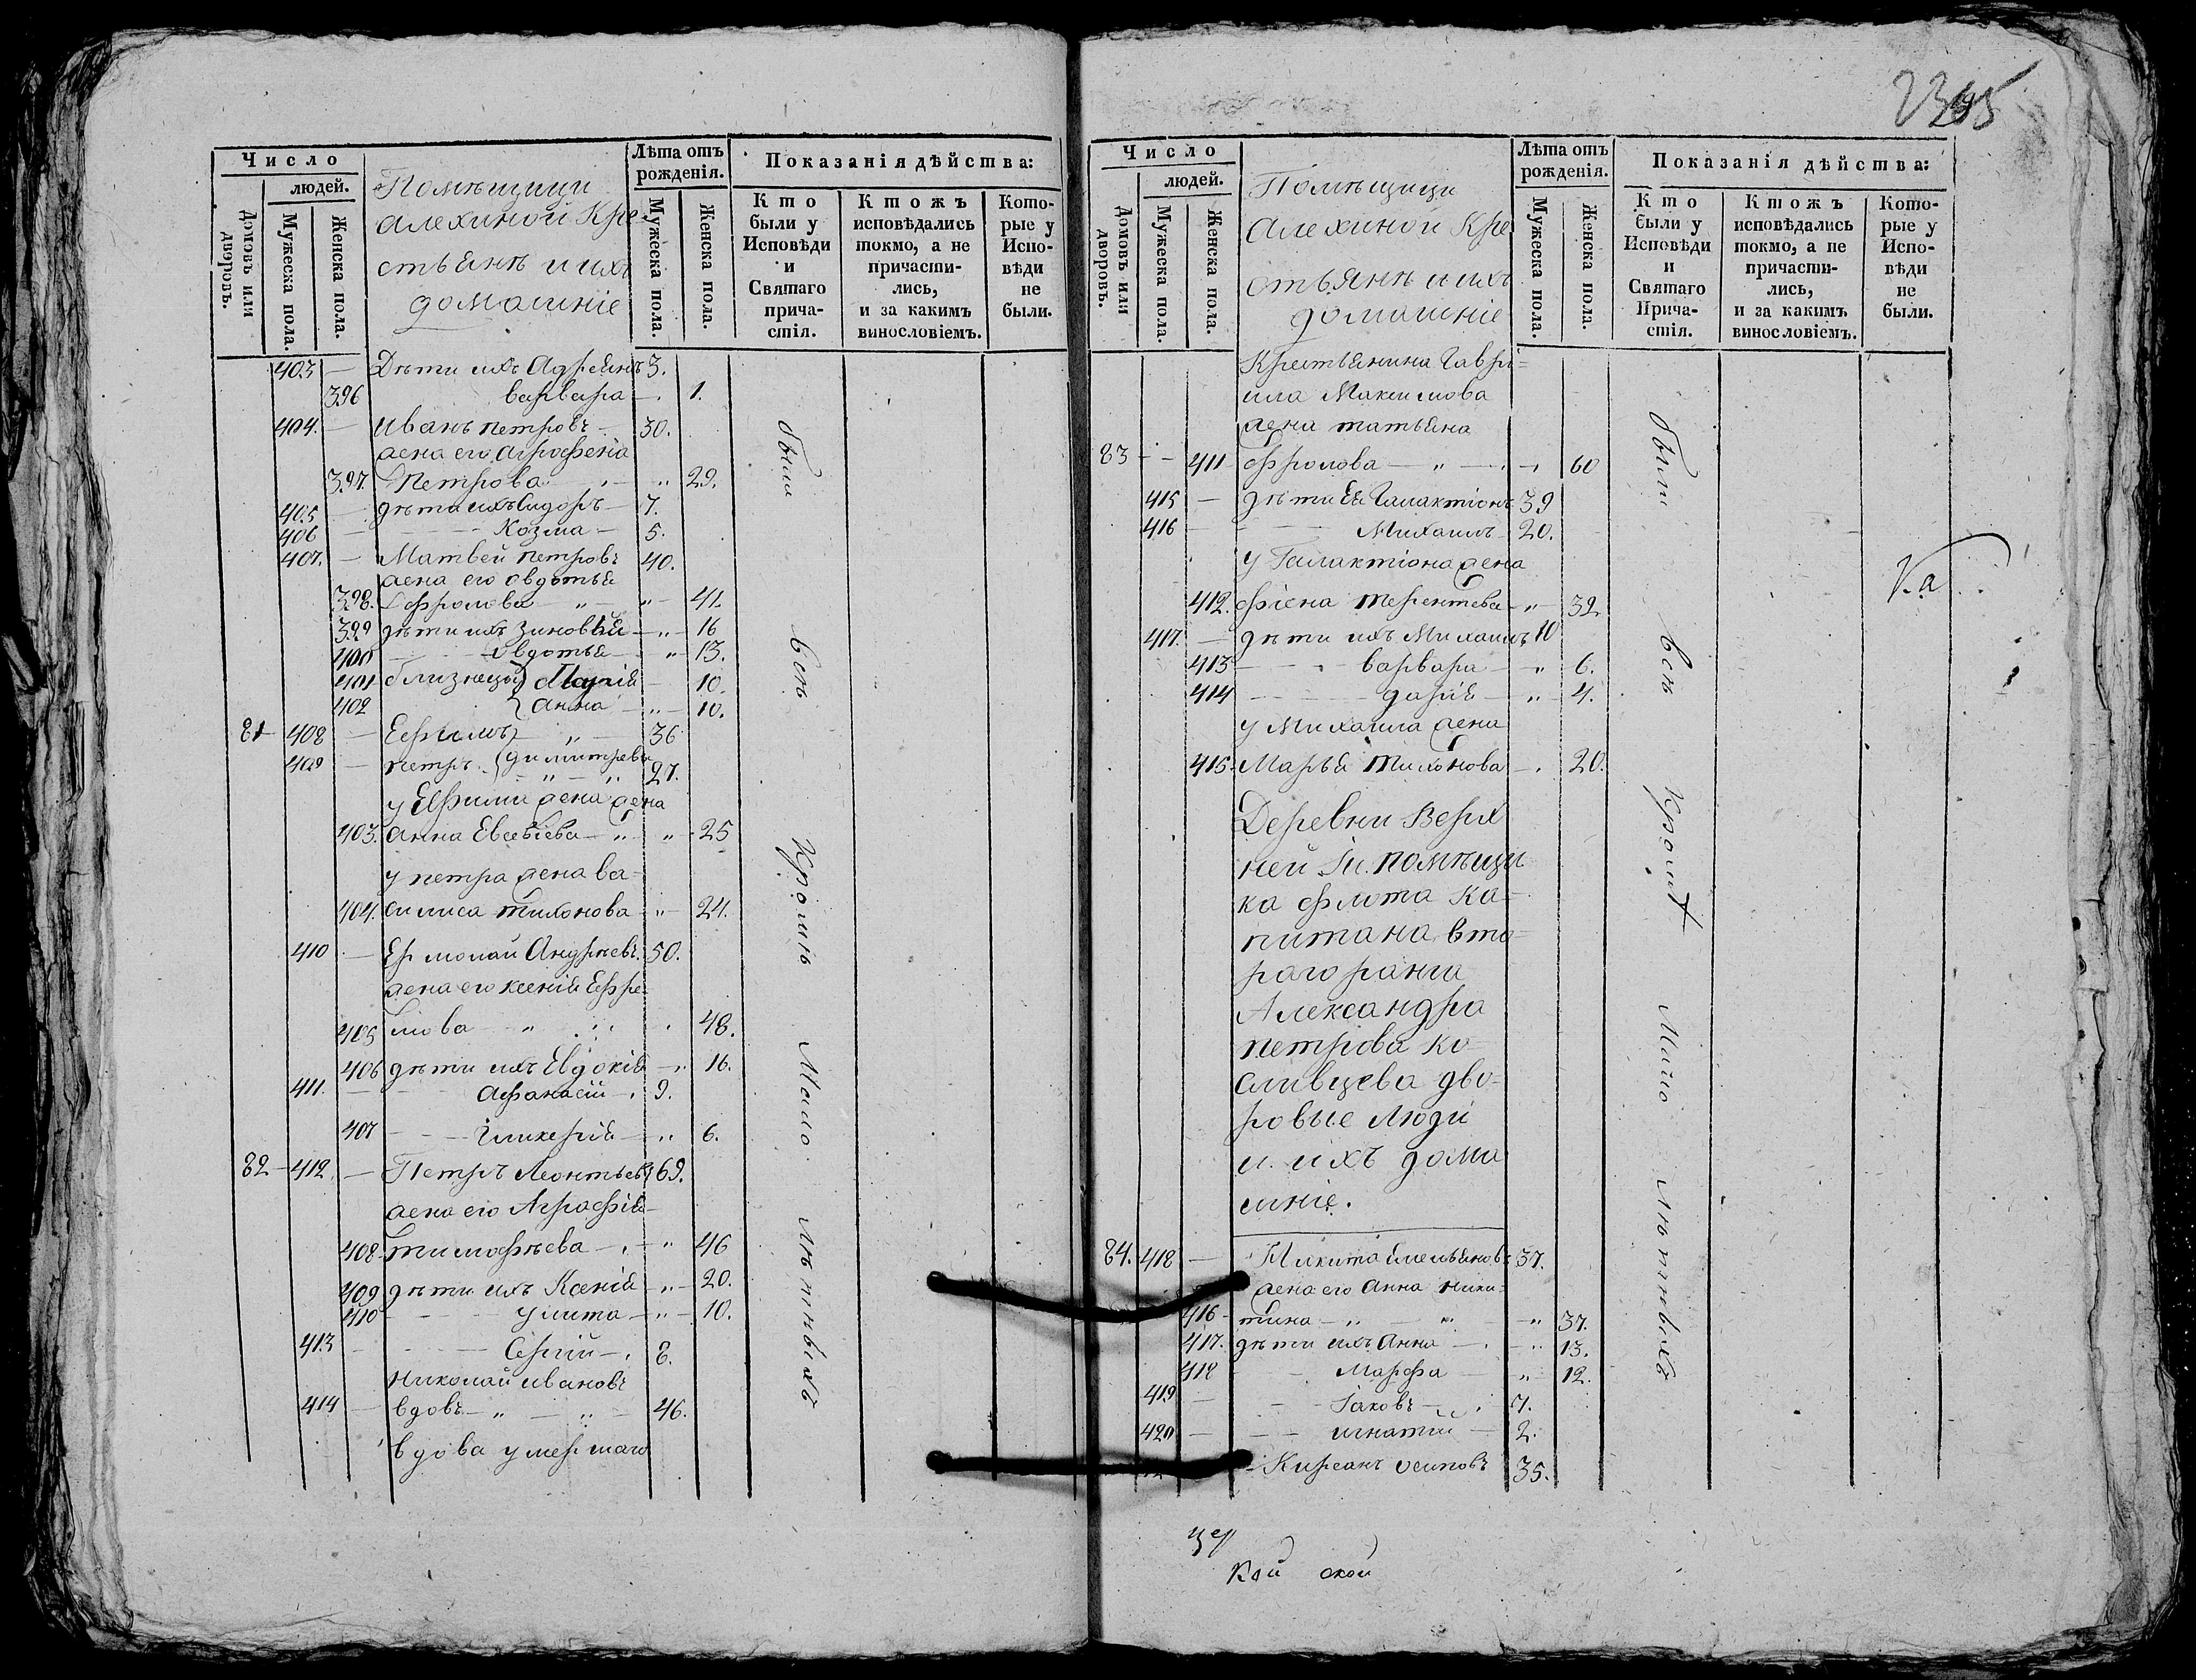 Число
людей.
Домовъ или дворовъ.
Мужеска пола.
Женска пола.
Помѣщицы
Алехиной Кре
стьянѣ и ихъ
домашніе
Лѣта отъ рожденія.
Мужеска пола.
Женска пола.
Показанія дѣйства:
Кто были у Исповѣди и Святаго причастія.
Ктожъ исповѣдались токмо, а не причастились, и за какимъ винословіемъ.
Которые у Исповѣди не были.
403 — Дѣти ихъ Адреянъ 3.
396 варвара — 1.
404. — Иванъ петровъ — 30.
жена его Агрофена
397. Петрова — " 29.
405 — дѣти ихъ Сидоръ — 7.
406 — Козма — 5.
407. — Матвей петровъ 40.
жена его овдотья
398. Фролова — " — " — 41.
399 дѣти ихъ Зиновья — " — 16
400 — овдотья — " — 13.
401 близнецы Марія — 10.
402 анна — " — 10.
81 408 — Ефимъ — " — 36
409 — петръ димитревы
— " — " 27.
у Ефима жена жена
403. анна Евсевіева — " " — 25
у петра жена ва-
404. силиса тихонова — " — 24.
410 — Ермолай Андрѣевъ 50.
жена его ксенія Ефре-
405 мова " 48.
406 дѣти ихъ Евдокія — " 16.
411. — Афанасій — 9.
407 — Гликерія — " 6.
82 — 412. — Петръ Леонтьевъ 69.
жена его Аграфія
408 тимофѣева — " 46
409 дѣти ихъ Ксенія — " — 20.
410 — улита — " — 10.
413 — Сергій — 8.
Николай ивановъ
414 — вдовъ — " — " — 46.
вдова умершаго
были всѣ кромѣ Мало лѣтныхъ
Число
людей.
Домовъ или дворовъ.
Мужеска пола.
Женска пола.
Помѣщицы
Алехиной Кре
стьянѣ и ихъ
домашніе
Лѣта отъ рожденія.
Мужеска пола.
Женска пола.
Показанія дѣйства:
Кто были у Исповѣди и Святаго Причастія.
Ктожъ исповѣдались токмо, а не причастились, и за какимъ винословіемъ.
Которые у Исповѣди не были.
Крестьянина Гаври-
ила Максимова
жена татьяна
83 — 411 фролова — " — 60
415 — дѣти Ея Галактіонъ 39
416 — Михаилъ 20.
у Галактіона жена
412. фіона терентева — " — 32.
417. — дѣти ихъ Михаилъ 10
413 — варвара — " 6.
414 — дарія — " 4.
у Михаила жена
415. Марья тихонова — 20.
Деревни Верх
ней Гн. помѣщи
ка флота ка-
питана, вто-
раго ранга
Александра
петрова ко-
сливцева дво-
ровые люди
и ихъ дома
шніе.
84. 418 — Никита Емельяновъ 37.
жена его анна ники-
416 — тина — " " — " 37.
417. дѣти ихъ Анна — " 13.
418 — Марфа — " 12.
419 — Іаковъ — 7.
420 — игнатій — 2.
— Кирсанъ осиповъ 35.
были всѣ кромѣ Мало лѣтныхъ
Ка
цер
кой ской